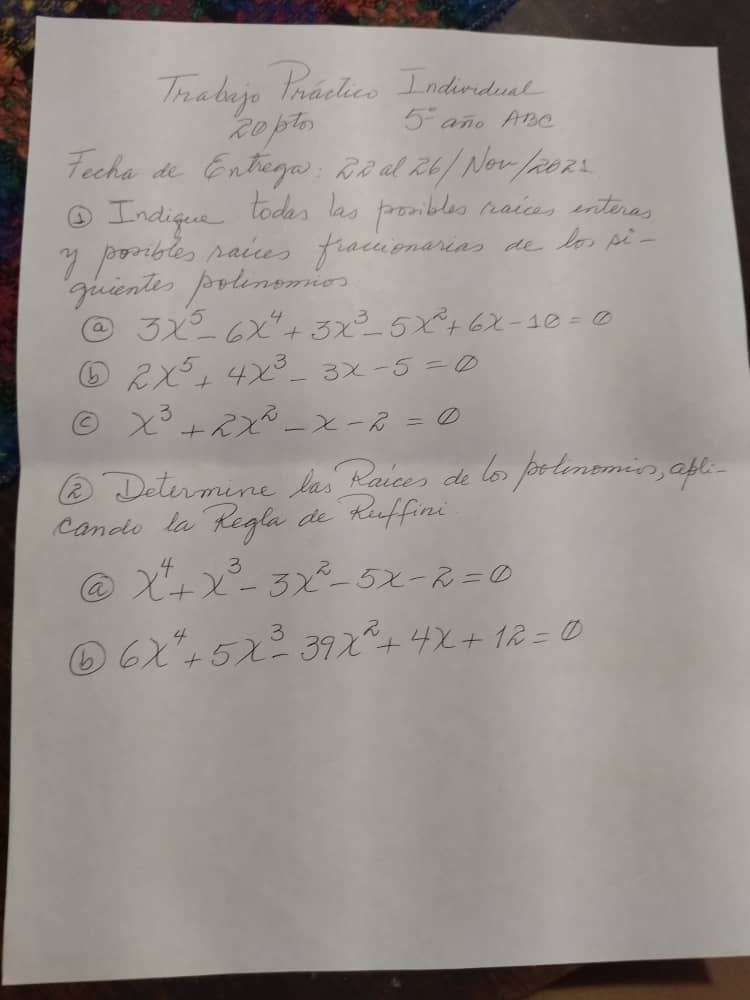 Trabajo Práctico Individual
20 ptos 5º año ABC
Fecha de Entrega: 22 al 26/Nov/2021
① Indique todas las posibles raíces enteras
y posibles raíces fraccionarias de los si-
guientes polinomios
ⓐ 3x⁵ - 6x⁴ + 3x³ - 5x² + 6x - 10 = 0
ⓑ 2x⁵ + 4x³ - 3x - 5 = 0
ⓒ x³ + 2x² - x - 2 = 0
② Determine las Raíces de los polinomios, apli-
cando la Regla de Ruffini.
ⓐ x⁴ + x³ - 3x² - 5x - 2 = 0
ⓑ 6x⁴ + 5x³ - 39x² + 4x + 12 = 0